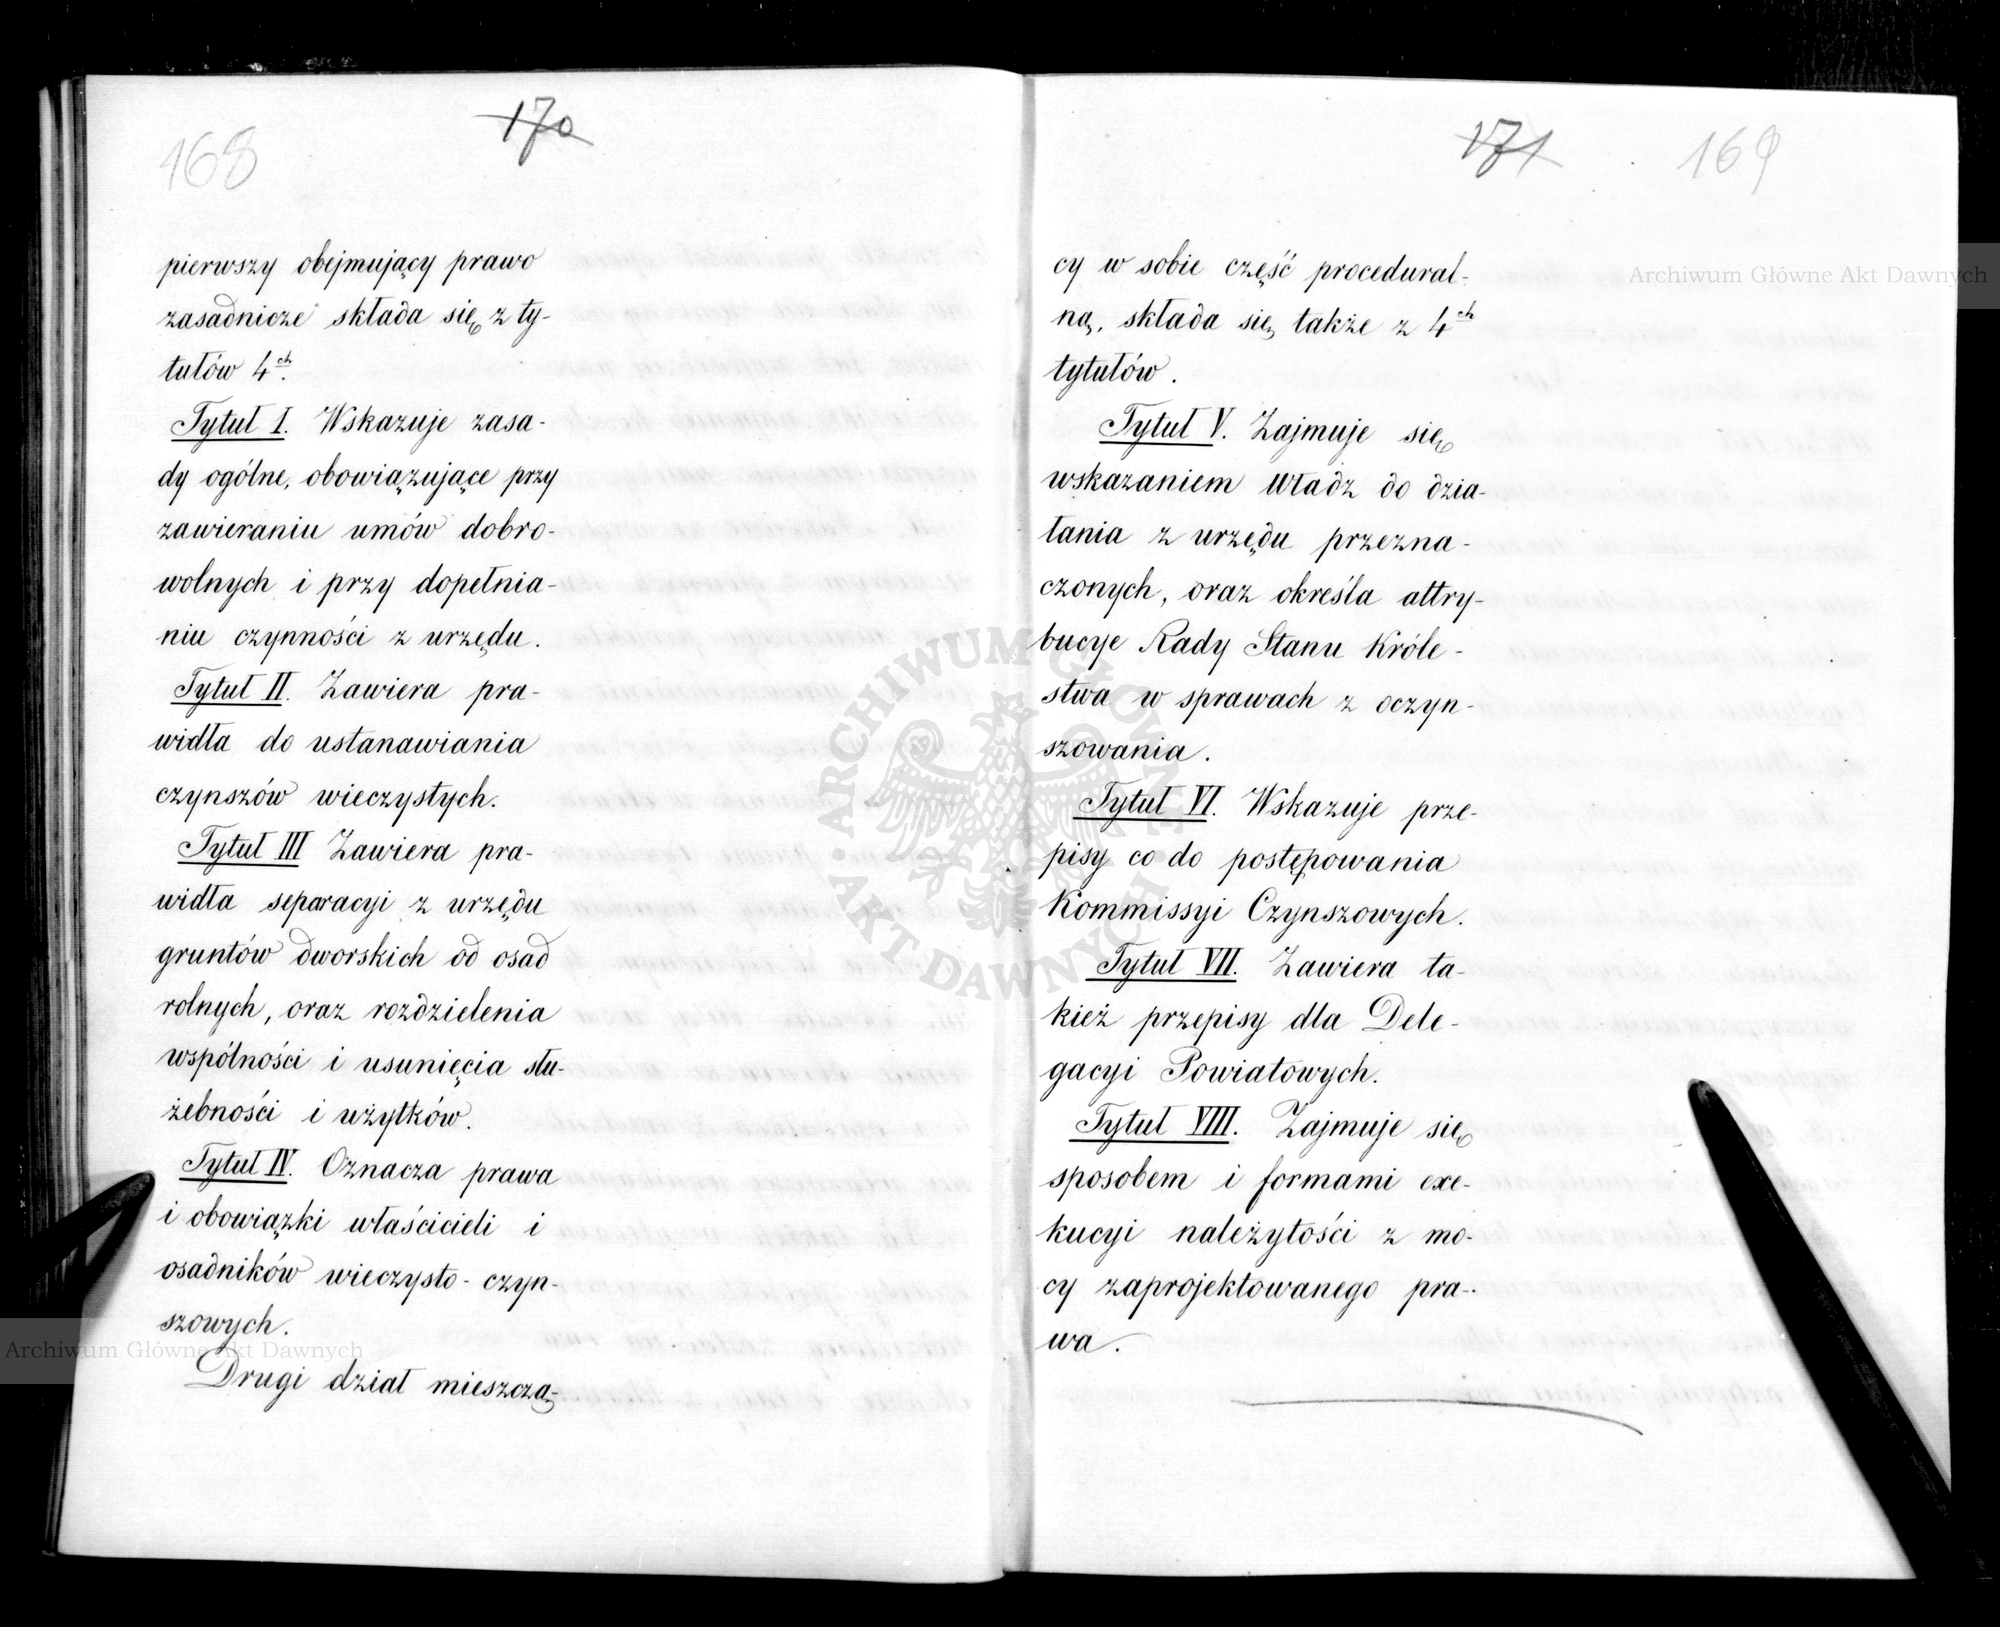 168
170
pierwszy obejmujący prawo
zasadnicze składa się z ty-
tułów 4ch.
Tytuł I. Wskazuje zasa-
dy ogólne, obowiązujące przy
zawieraniu umów dobro-
wolnych i przy dopełnia-
niu czynności z urzędu.
Tytuł II. Zawiera pra-
widła do ustanawiania
czynszów wieczystych.
Tytuł III Zawiera pra-
widła separacyi z urzędu
gruntów dworskich od osad
rolnych, oraz rozdzielenia
wspólności i usunięcia słu-
żebności i użytków.
Tytuł IV. Oznacza prawa
i obowiązki właścicieli i
osadników wieczysto-czyn-
szowych.
Drugi dział mieszczą-
171
169
cy w sobie część procedural-
ną, składa się także z 4ch
tytułów.
Tytuł V. Zajmuje się
wskazaniem Władz do dzia-
łania z urzędu przezna-
czonych, oraz określa attry-
bucye Rady Stanu Króle-
stwa w sprawach z oczyn-
szowania.
Tytuł VI. Wskazuje prze-
pisy co do postępowania
Kommissyi Czynszowych.
Tytuł VII. Zawiera ta-
kież przepisy dla Dele-
gacyi Powiatowych.
Tytuł VIII. Zajmuje się
sposobem i formami exe-
kucyi należytości z mo-
cy zaprojektowanego pra-
wa.
Archiwum Główne Akt Dawnych
Archiwum Główne Akt Dawnych
ARCHIWUM GŁÓWNE
AKT DAWNYCH